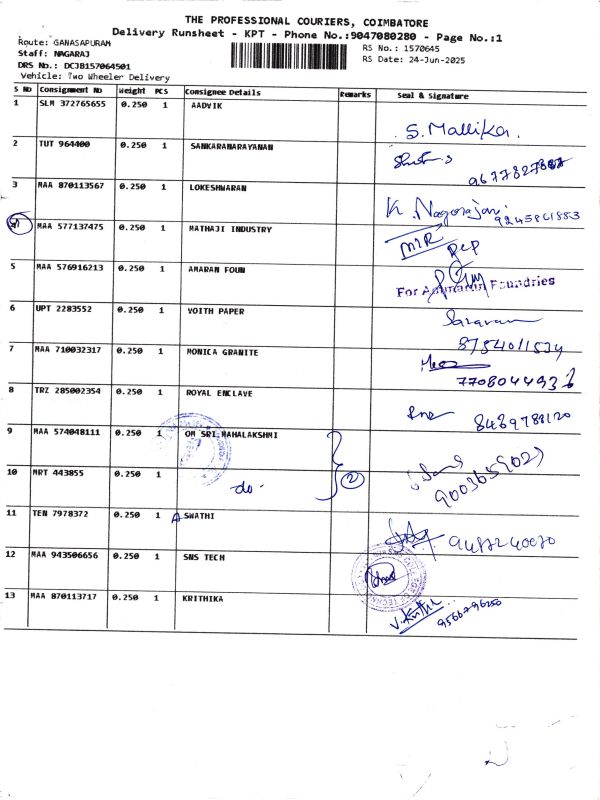 THE PROFESSIONAL COURIERS, COIMBATORE
Delivery Runsheet - KPT - Phone No.:9047080280 - Page No.:1
Route: GANASAPURAM
Staff: NAGARAJ
DRS No.: DCJB157064501
Vehicle: Two Wheeler Delivery
RS No.: 1570645
RS Date: 24-Jun-2025
S No Consignment No Weight PCS Consignee Details Remarks Seal & Signature
1 SLM 372765655 0.250 1 AADVIK
S. Mallika.
2 TUT 964400 0.250 1 SANKARANARAYANAN
3 MAA 870113567 0.250 1 LOKESHWARAN
K. Nagarajan 9245861883
4 MAA 577137475 0.250 1 MATHAJI INDUSTRY
5 MAA 576916213 0.250 1 AMARAN FOUN
For Foundries
6 UPT 2283552 0.250 1 VOITH PAPER
Saravanan
8754011534
7 MAA 710032317 0.250 1 MONICA GRANITE
7708044936
8 TRZ 285002354 0.250 1 ROYAL ENCLAVE
8489788120
9 MAA 574048111 0.250 1 OM SRI MAHALAKSHMI
10 MRT 443855 0.250 1 do. 2
9003659027
11 TEN 7978372 0.250 1 A SWATHI
9487240070
12 MAA 943506656 0.250 1 SNS TECH
13 MAA 870113717 0.250 1 KRITHIKA
9566796250